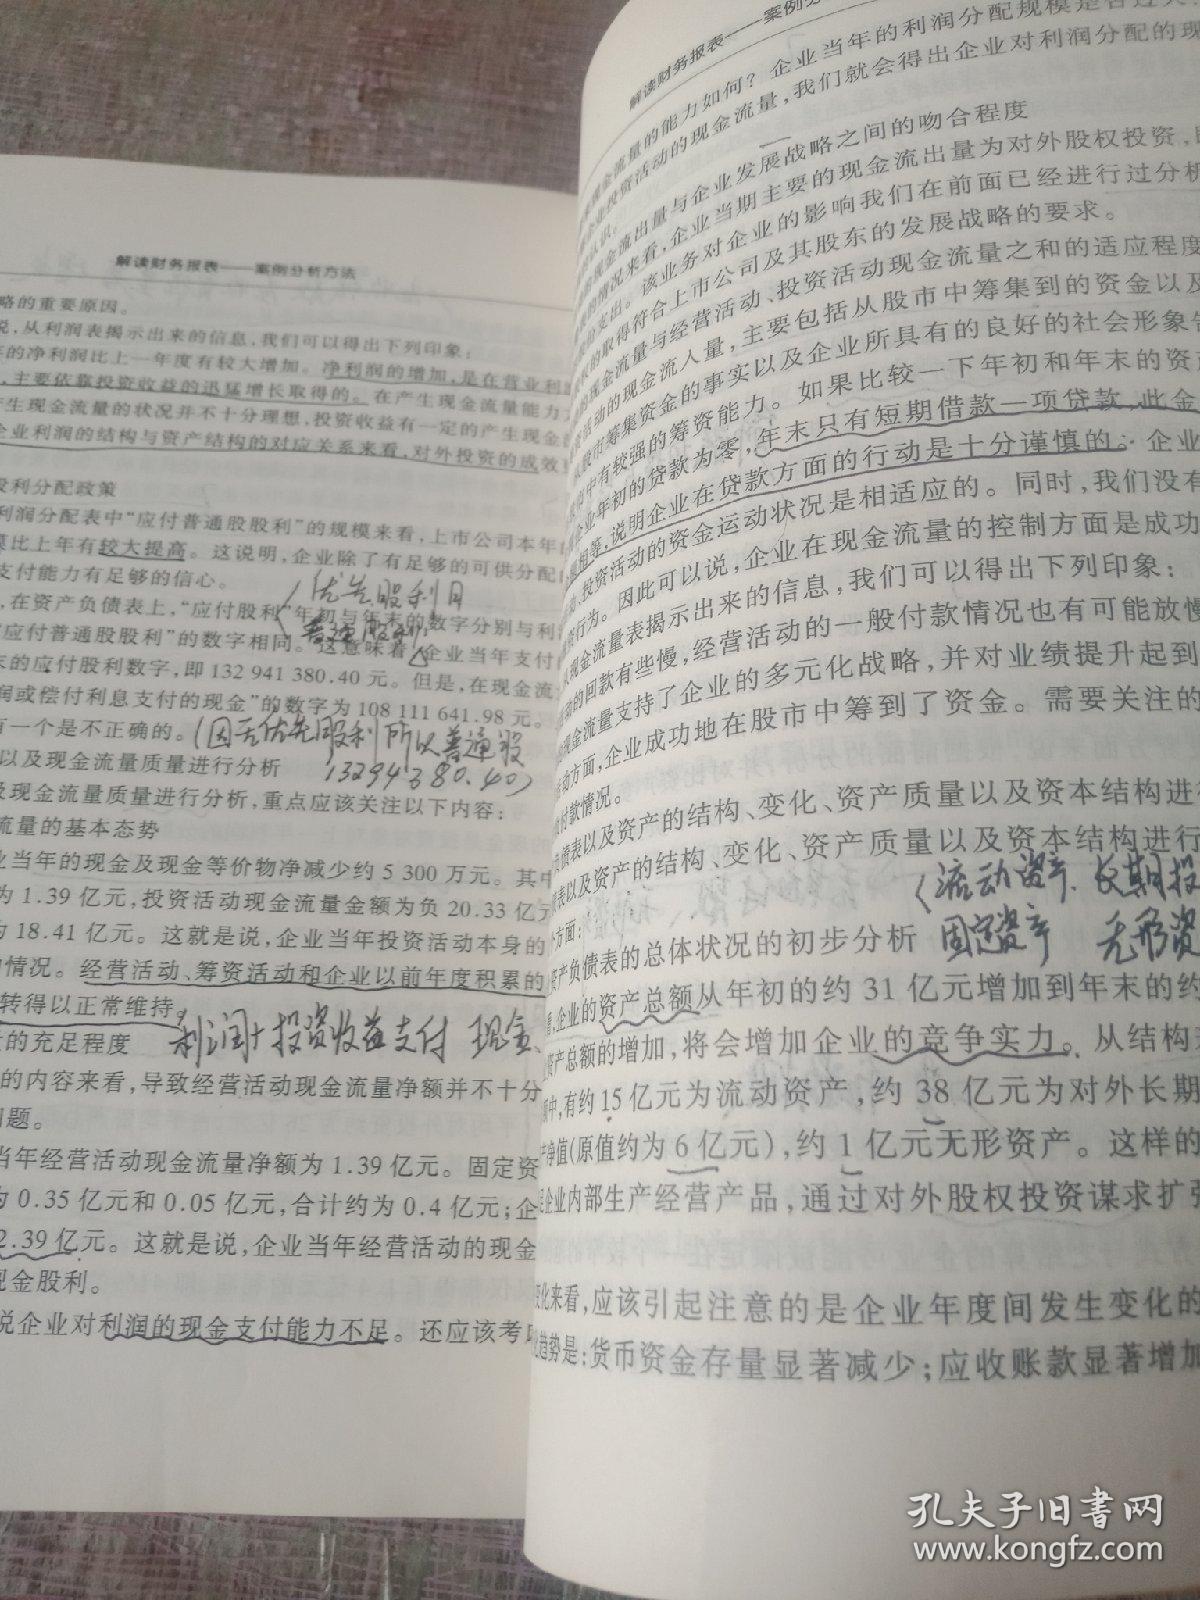 解读财务报表——案例分析方法
略的重要原因。
说，从利润表揭示出来的信息，我们可以得出下列印象：
的净利润比上一年度有较大增加。净利润的增加，是在营业利
，主要依靠投资收益的迅猛增长取得的。在产生现金流量能力
产生现金流量的状况并不十分理想，投资收益有一定的产生现金
企业利润的结构与资产结构的对应关系来看，对外投资的成效
股利分配政策
利润分配表中“应付普通股股利”的规模来看，上市公司本年
模比上年有较大提高。这说明，企业除了有足够的可供分配
支付能力有足够的信心。
（优先股利月
，在资产负债表上，“应付股利”年初与年末的数字分别与利
普通股利
“应付普通股股利”的数字相同。这意味着，企业当年支付
末的应付股利数字，即 132 941 380.40 元。但是，在现金流
润或偿付利息支付的现金”的数字为 108 111 641.98 元。
有一个是不正确的。（因无优先股利所以普通股
以及现金流量质量进行分析 132941380.40）
及现金流量质量进行分析，重点应该关注以下内容：
流量的基本态势
业当年的现金及现金等价物净减少约 5 300 万元。其中
为 1.39 亿元，投资活动现金流量金额为负 20.33 亿元
为 18.41 亿元。这就是说，企业当年投资活动本身的
的情况。经营活动、筹资活动和企业以前年度积累的
转得以正常维持。
的充足程度 利润+投资收益支付 现金、
的内容来看，导致经营活动现金流量净额并不十分
问题。
当年经营活动现金流量净额为 1.39 亿元。固定资
为 0.35 亿元和 0.05 亿元，合计约为 0.4 亿元；企
2.39 亿元。这就是说，企业当年经营活动的现金
现金股利。
说企业对利润的现金支付能力不足。还应该考
解读财务报表——案例
现金流量的能力如何？企业当年的利润分配规模是否过大
企业投资活动的现金流量，我们就会得出企业对利润分配的现
认识。
现金流出量与企业发展战略之间的吻合程度
的情况来看，企业当期主要的现金流出量为对外股权投资，
支出。该业务对企业的影响我们在前面已经进行过分析
的取得符合上市公司及其股东的发展战略的要求。
的现金流量与经营活动、投资活动现金流量之和的适应程度
活动的现金流入量，主要包括从股市中筹集到的资金以及
股市筹集资金的事实以及企业所具有的良好的社会形象
中有较强的筹资能力。如果比较一下年初和年末的资产
企业年初的贷款为零，年末只有短期借款一项贷款，此金
相等，说明企业在贷款方面的行动是十分谨慎的。企业
、投资活动的资金运动状况是相适应的。同时，我们没有
行为。因此可以说，企业在现金流量的控制方面是成功
从现金流量表揭示出来的信息，我们可以得出下列印象：
动的回款有些慢，经营活动的一般付款情况也有可能放慢
现金流量支持了企业的多元化战略，并对业绩提升起到
活动方面，企业成功地在股市中筹到了资金。需要关注的
付款情况。
负债表以及资产的结构、变化、资产质量以及资本结构进行
债表以及资产的结构、变化、资产质量以及资本结构进行
方面： （流动资产、长期投
资产负债表的总体状况的初步分析 固定资产 无形资
，企业的资产总额从年初的约 31 亿元增加到年末的约
资产总额的增加，将会增加企业的竞争实力。从结构
中，有约 15 亿元为流动资产，约 38 亿元为对外长期
产净值（原值约为 6 亿元），约 1 亿元无形资产。这样的
是企业内部生产经营产品，通过对外股权投资谋求扩张
变化来看，应该引起注意的是企业年度间发生变化的
化趋势是：货币资金存量显著减少；应收账款显著增加
孔夫子旧书网
www.kongfz.com